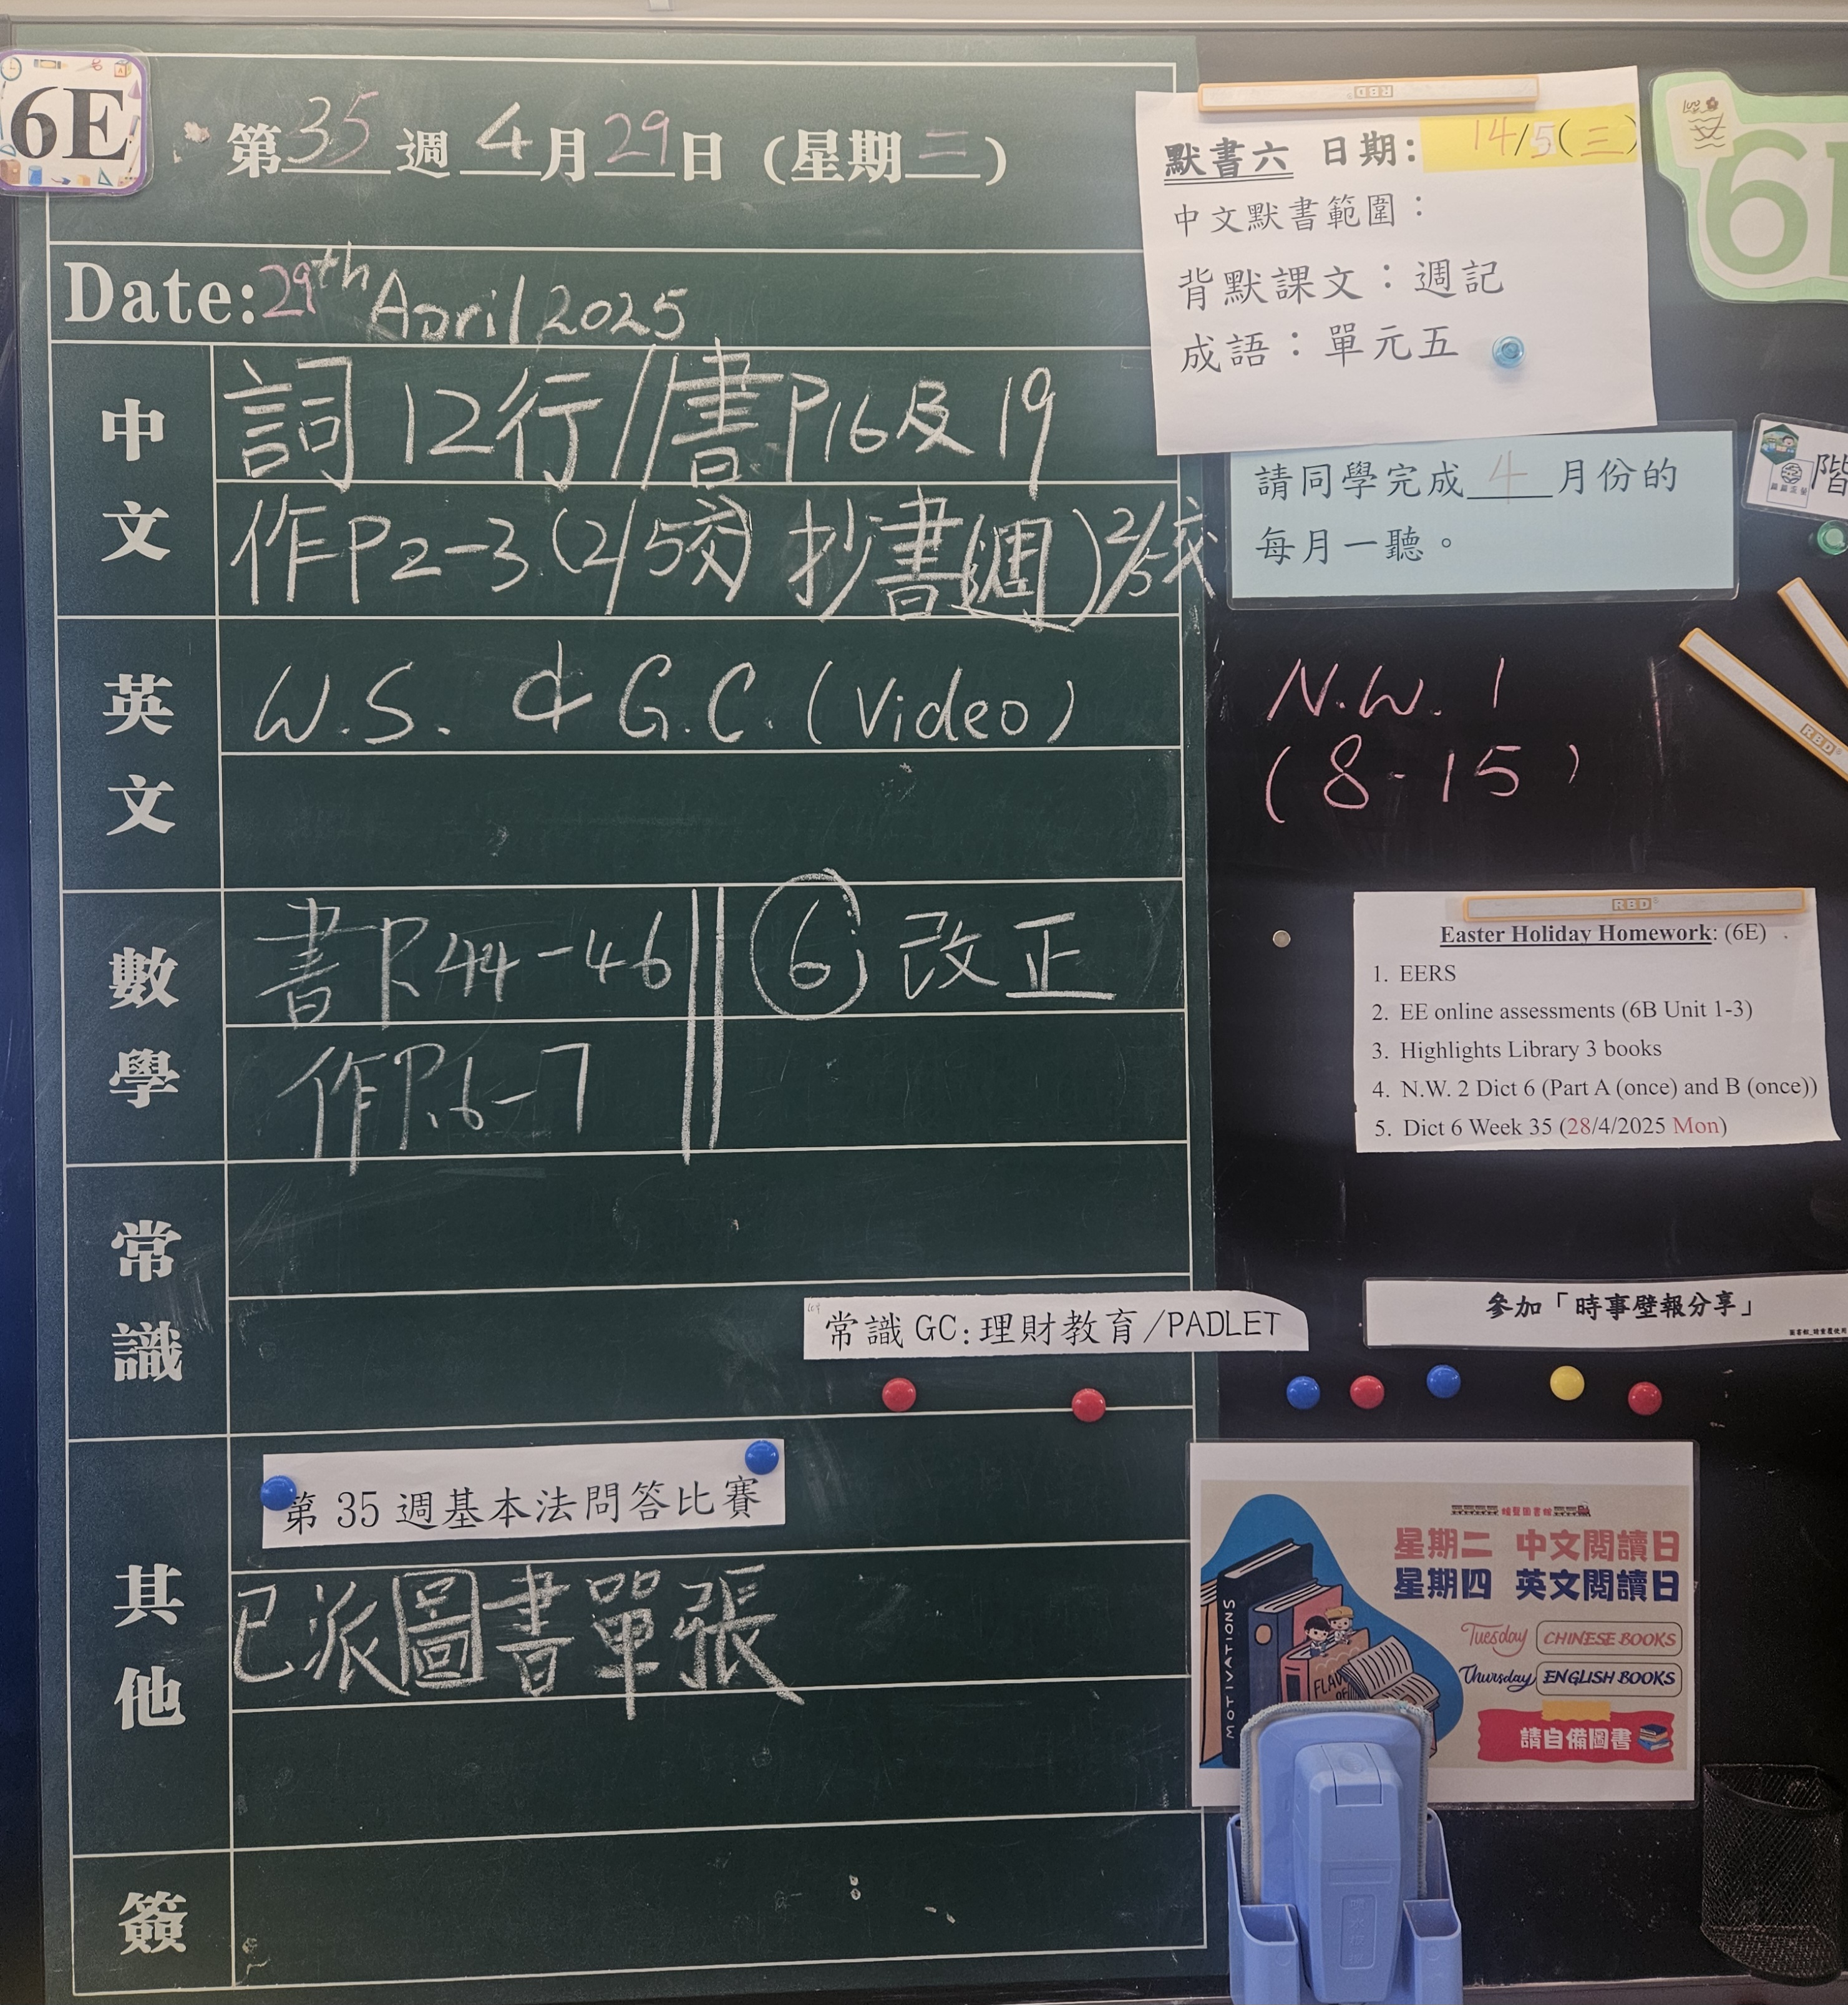 6E
第35週 4月29日 (星期三)
Date: 29th April 2025
中文
詞12行//書P16及19
作P2-3(2/5交) 抄書(週)2/5交
英文
W.S. & G.C. (Video)
數學
書P.44-46 || ⑥改正
作P.6-7
常識
常識GC:理財教育/PADLET
其他
第 35 週基本法問答比賽
已派圖書單張
簽
默書六 日期: 14/5(三)
中文默書範圍：
背默課文：週記
成語：單元五
請同學完成 4 月份的
每月一聽。
階
N.W. 1
(8-15)
RBD
Easter Holiday Homework: (6E)
1. EERS
2. EE online assessments (6B Unit 1-3)
3. Highlights Library 3 books
4. N.W. 2 Dict 6 (Part A (once) and B (once))
5. Dict 6 Week 35 (28/4/2025 Mon)
參加「時事壁報分享」
星期二 中文閱讀日
星期四 英文閱讀日
Tuesday CHINESE BOOKS
Thursday ENGLISH BOOKS
請自備圖書
MOTIVATIONS